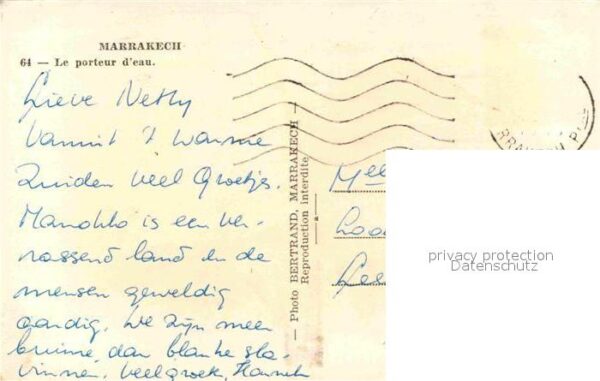 MARRAKECH
64 — Le porteur d'eau.
Lieve Netty
Vanuit 't warme
Zuiden veel Groetjes.
Marokko is een ver-
rassend land en de
mensen geweldig
aardig. We zijn meer
bruine, dan blanke sla-
vinnen. Veel groet,
— Photo BERTRAND, MARRAKECH —
Reproduction interdite
Mell
Loo
privacy protection
Datenschutz